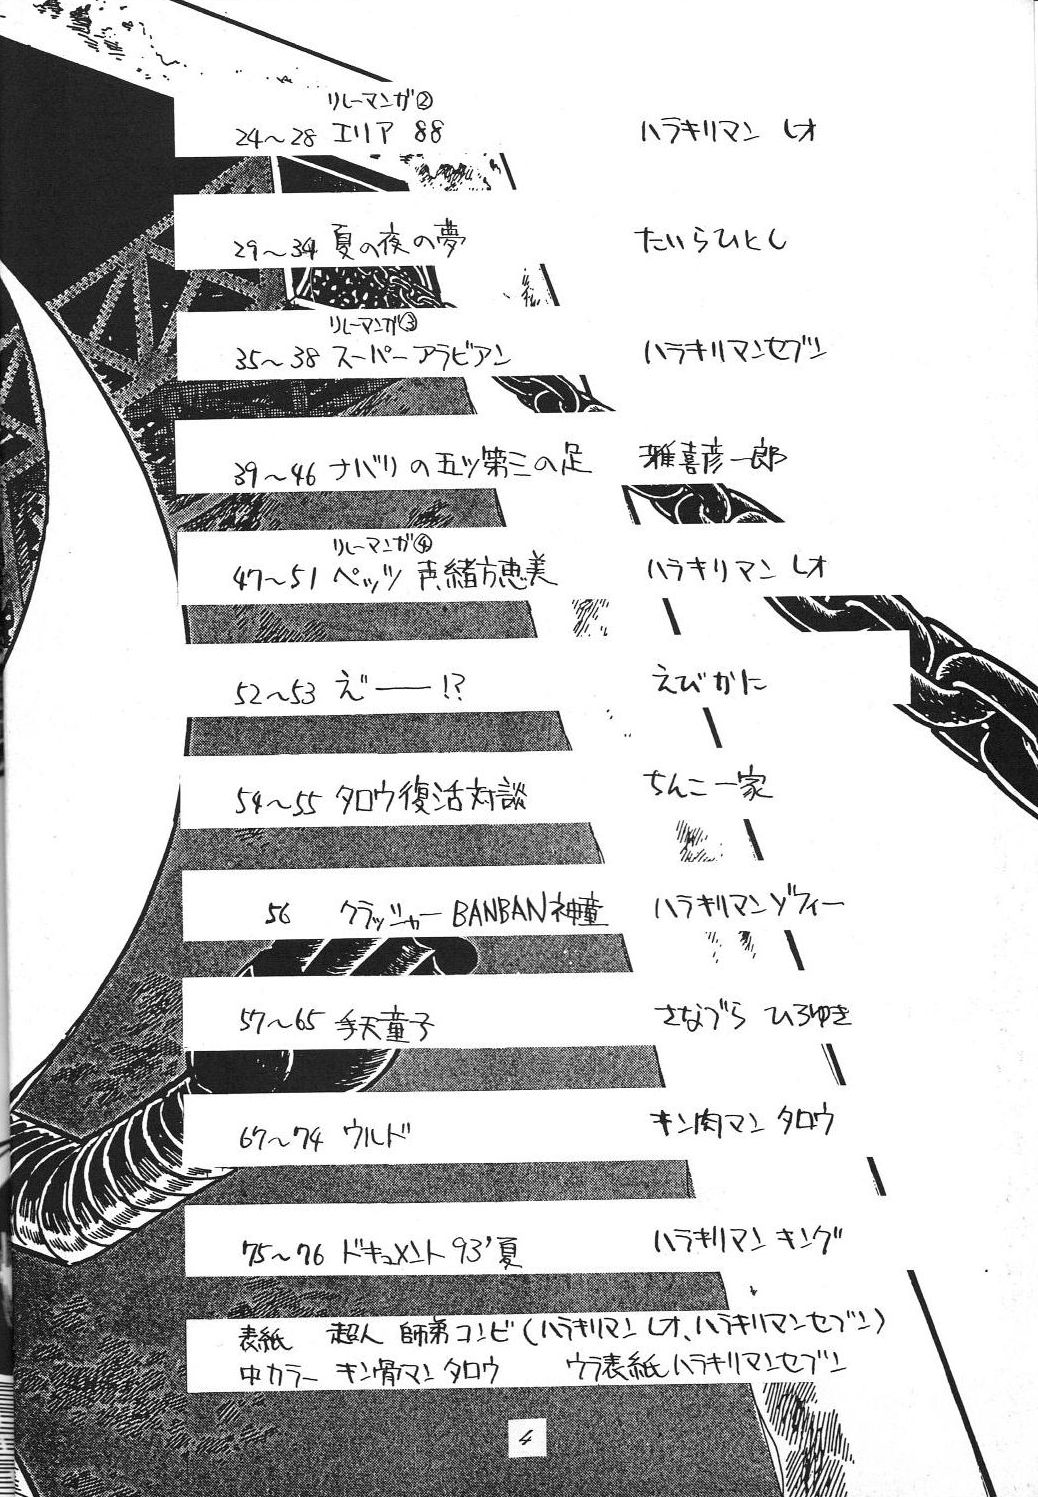 リレーマンガ②
24～28 エリア 88 ハラキリマン レオ
29～34 夏の夜の夢 たいらひとし
リレーマンガ③
35～38 スーパーアラビアン ハラキリマンセブン
39～46 ナバリの五ツ第三の足 雅喜彦一郎
リレーマンガ④
47～51 ペッツ 声、緒方恵美 ハラキリマン レオ
52～53 え゛――!? えびかに
54～55 タロウ復活対談 ちんこ一家
56 クラッシャーBANBAN神童 ハラキリマンゾフィー
57～65 手天童子 さなづら ひろゆき
67～74 ウルド キン肉マン タロウ
75～76 ドキュメント93'夏 ハラキリマン キング
表紙 超人 師弟コンビ(ハラキリマン レオ、ハラキリマンセブン)
中カラー キン骨マン タロウ ウラ表紙ハラキリマンセブン
4